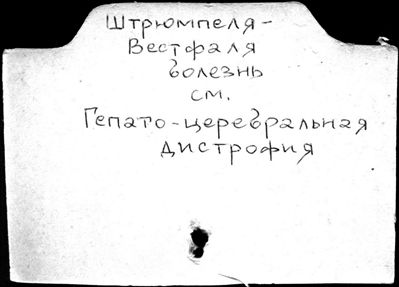 Штрюмпеля-
Вестфаля
болезнь
см.
Гепато-церебральная
дистрофия